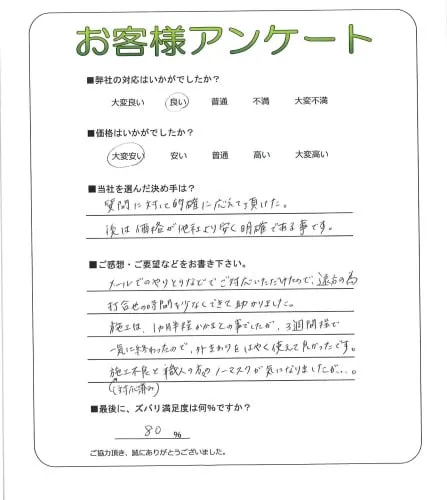 お客様アンケート
■弊社の対応はいかがでしたか？
大変良い 良い 普通 不満 大変不満
■価格はいかがでしたか？
大変安い 安い 普通 高い 大変高い
■当社を選んだ決め手は？
質問に対して的確に応えて頂けた。
後は価格が他社より安く明確である事です。
■ご感想・ご要望などをお書き下さい。
メールでのやりとりなどでご対応いただけたので、遠方の為
打合せの時間も少なくできて助かりました。
施工は、1ヶ月半程かかるとの事でしたが、3週間程で
一気に終わったので、外まわりをはやく使えて良かったです。
施工不良と職人の方のノーマスクが気になりましたが…。
(対応済み)
■最後に、ズバリ満足度は何%ですか？
80 %
ご協力頂き、誠にありがとうございました。